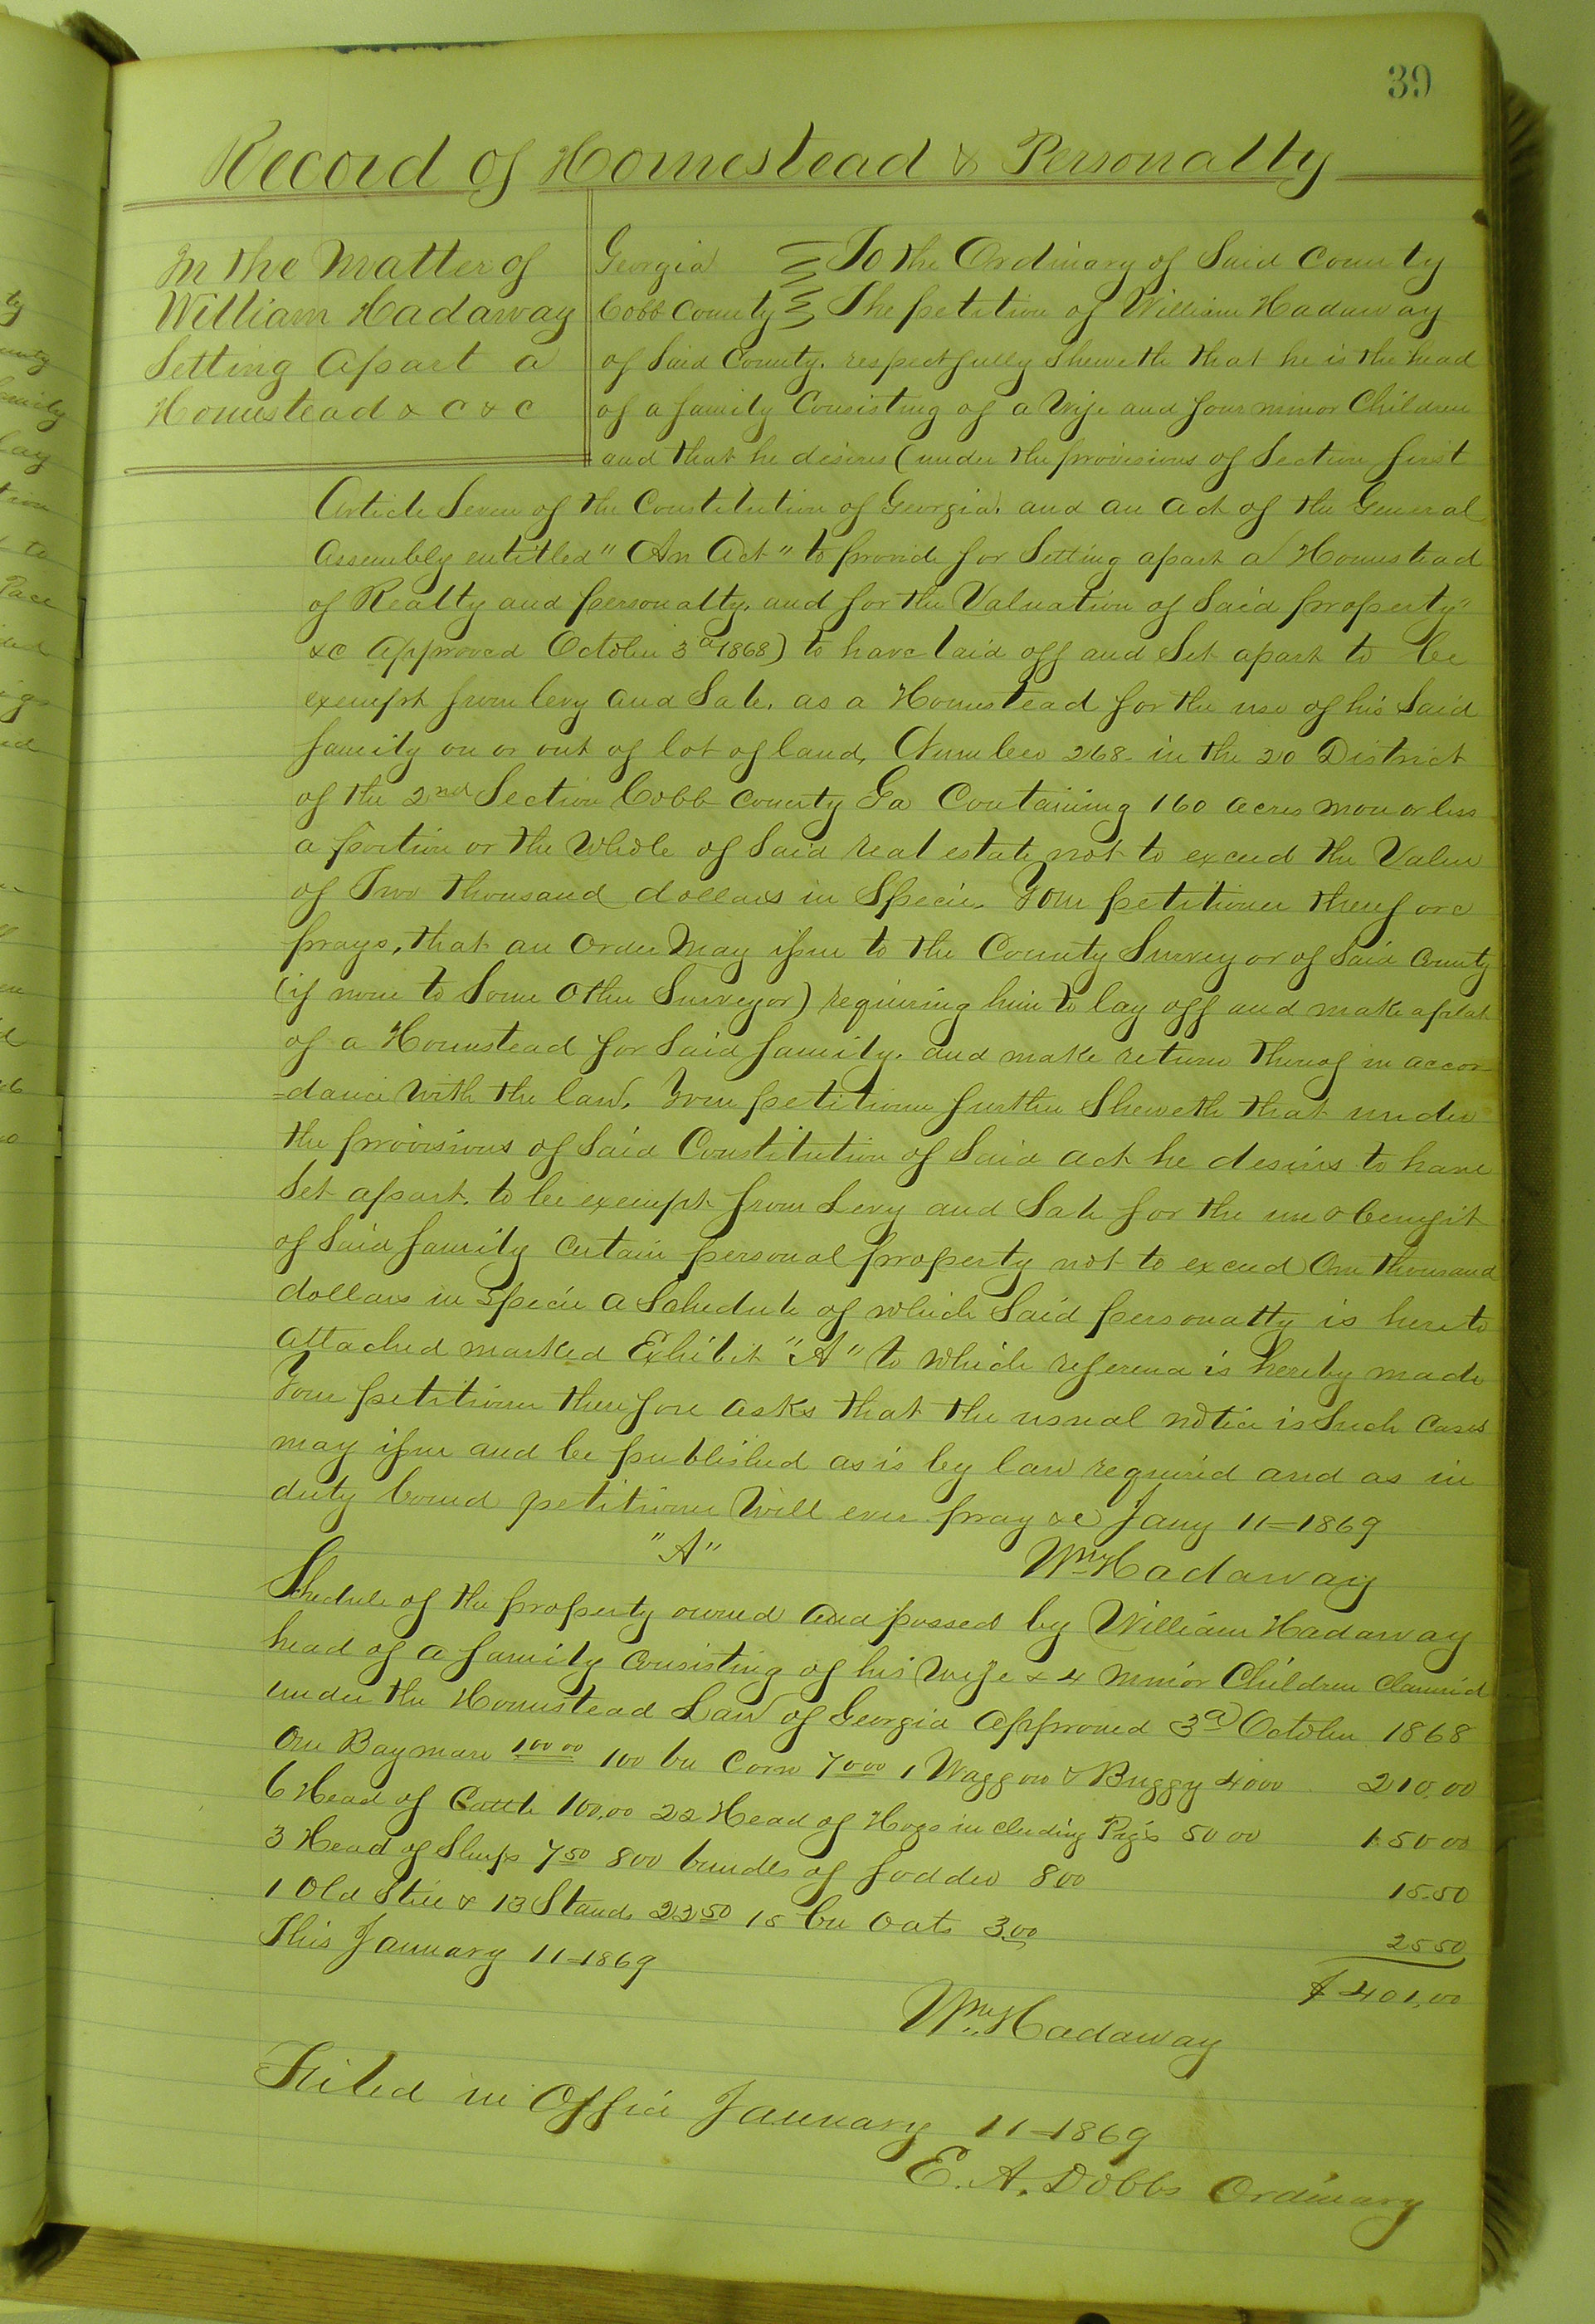 39
Record of Homestead & Personalty
In the Matter of
William Hadaway
Setting Apart a
Homestead & C & C
Georgia To the Ordinary of Said County
Cobb County The petition of William Hadaway
of Said County. respectfully sheweth that he is the head
of a family Consisting of a Wife and four minor Children
and that he desires (under the provisions of Section first
Article Seven of the Constitution of Georgia. and an act of the General
Assembly entitled "An Act" to provide for Setting apart a Homestead
of Realty and personalty. and for the Valuation of Said property"
&c Approved October 3d 1868) to have laid off and Set apart to be
exempt from levy and Sale. as a Homestead for the use of his Said
family on or out of lot of land, Number 268 in the 20 District
of the 2nd Section Cobb County Ga Containing 160 acres more or less
a portion or the Whole of Said real estate not to exceed the Value
of Two thousand dollars in Specie. Your petitioner therefore
prays, that an order May issue to the County Surveyor of Said County
(if none to Some Other Surveyor) requiring him to lay off and make a plat
of a Homestead for Said family. and make return thereof in accor
=dance With the law. Your petitioner further Sheweth that under
the provisions of Said Constitution of Said act he desires to have
Set apart. to be exempt from Levy and Sale for the use & benefit
of Said family Certain personal property not to exceed One thousand
dollars in Specie a Schedule of which Said personalty is hereto
attached marked Exhibit "A" to which reference is hereby made
Your petitioner therefore asks that the usual notice is Such Cases
may issue and be published as is by law required and as in
duty bound petitioner Will ever pray &c Jany 11=1869
"A" Wm Hadaway
Schedule of the property owned and possed by William Hadaway
head of a family Consisting of his Wife & 4 Minor Children Claimed
under the Homestead Law of Georgia Approved 3d October 1868
One Bay mare 100 00 100 bu Corn 70 00 1 Waggon & Buggy 40 00 210.00
6 Head of Cattle 100.00 22 Head of Hogs including Pigs 50 00 150 00
3 Head of Sheep 7 50 800 bundles of fodder 8 00 15.50
1 Old Still & 13 Stands 22 50 15 bu Oats 3.00 25 50
This January 11=1869 $ 401.00
Wm. Hadaway
Filed in Office January 11=1869
E. A. Dobbs Ordinary